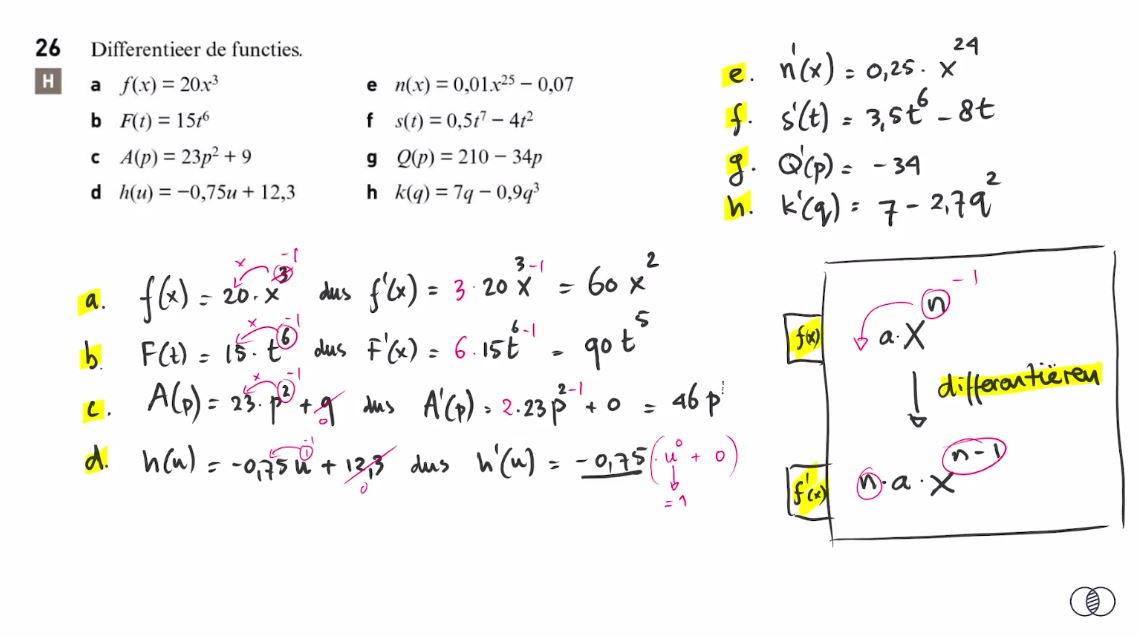 26 Differentieer de functies.
H
a f(x) = 20x³
b F(t) = 15t⁶
c A(p) = 23p² + 9
d h(u) = −0,75u + 12,3
e n(x) = 0,01x²⁵ − 0,07
f s(t) = 0,5t⁷ − 4t²
g Q(p) = 210 − 34p
h k(q) = 7q − 0,9q³
e. n'(x) = 0,25 · x²⁴
f. s'(t) = 3,5t⁶ − 8t
g. Q'(p) = −34
h. k'(q) = 7 − 2,7q²
a. f(x) = 20 · x³ ⁻¹ x dus f'(x) = 3 · 20x³⁻¹ = 60x²
b. F(t) = 15 · t⁶ ⁻¹ x dus F'(x) = 6 · 15t⁶⁻¹ = 90t⁵
c. A(p) = 23 · p² ⁻¹ x + 9 0 dus A'(p) = 2 · 23p²⁻¹ + 0 = 46p¹
d. h(u) = −0,75u¹ ⁻¹ + 12,3 0 dus h'(u) = −0,75 (· u⁰ + 0)
= 1
f(x) a · xⁿ ⁻¹
differentiëren
f'(x) n · a · xⁿ⁻¹